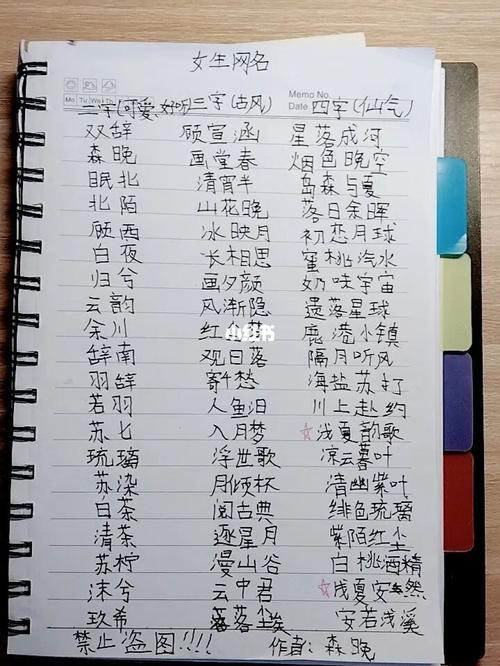 女生网名
Memo No.
Mo Tu We Th
Date
二字(可爱、好听) 三字(古风) 四字(仙气)
双辞 顾宣涵 星落成河
森晚 画堂春 烟色晚空
眠北 清宵半 岛森与夏
北陌 山花晚 落日余晖
顾西 冰映月 初恋月球
白夜 长相思 蜜桃汽水
归兮 画夕颜 奶味宇宙
云韵 风渐隐 遗落星球
余川 红 鹿港小镇
小红书
辞南 观日落 隔月听风
羽辞 寄千愁 海盐苏打
若羽 人鱼泪 川上赴约
苏七 入月梦 ☆浅夏韵歌
琉璃 浮世歌 凉云暮叶
苏染 月倾杯 清幽紫叶
白茶 阅古典 绯色琉璃
清茶 逐星月 紫陌红尘
苏柠 漫山谷 白桃酒精
沫兮 云中君 ☆浅夏安然
玖希 落尘埃 安若浅溪
禁止盗图!!! 作者:森晚